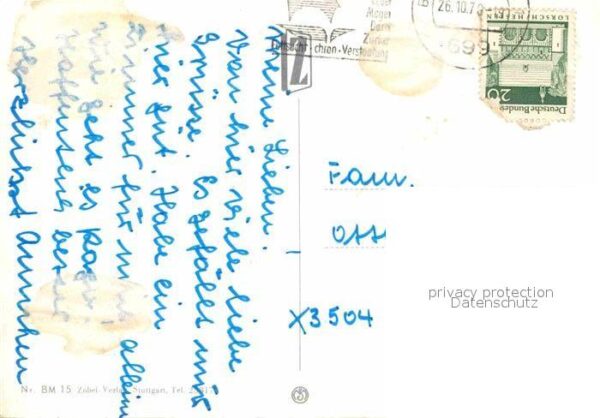 Meine Lieben.
Von hier viele liebe
Grüsse. Es gefällt mir
hier gut. Habe ein
Zimmer für mich allein
wie geht es Papa
Hoffentlich besser
Herzlichst Annchen
Fam.
Ott
X3504
26.10.7
699
LORSCH/HESSEN
Deutsche Bundes
20
privacy protection
Datenschutz
Nr. BM 15 Zobel Verlag Stuttgart, Tel.